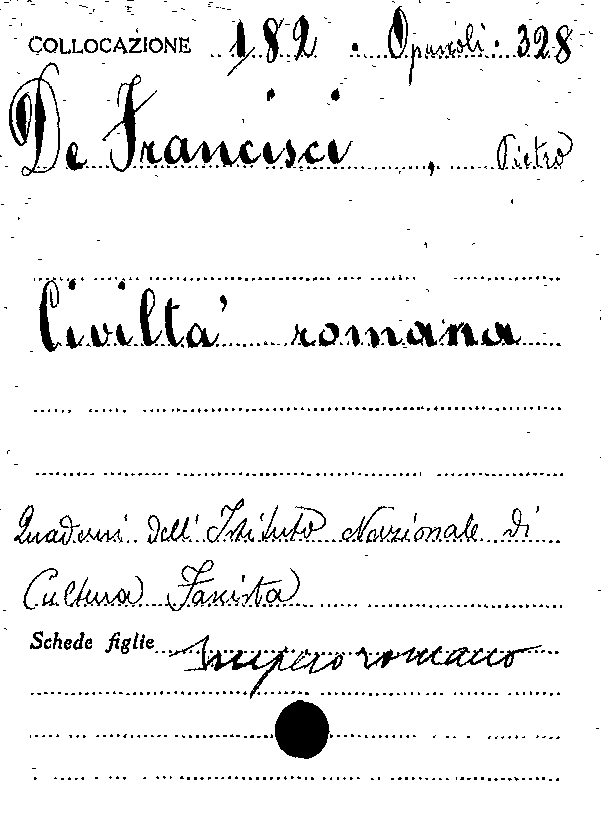 COLLOCAZIONE 182 . Opuscoli . 328
De Francisci , Pietro
Civiltà romana
Quaderni dell'Istituto Nazionale di
Cultura Fascista
Schede figlie Impero romano